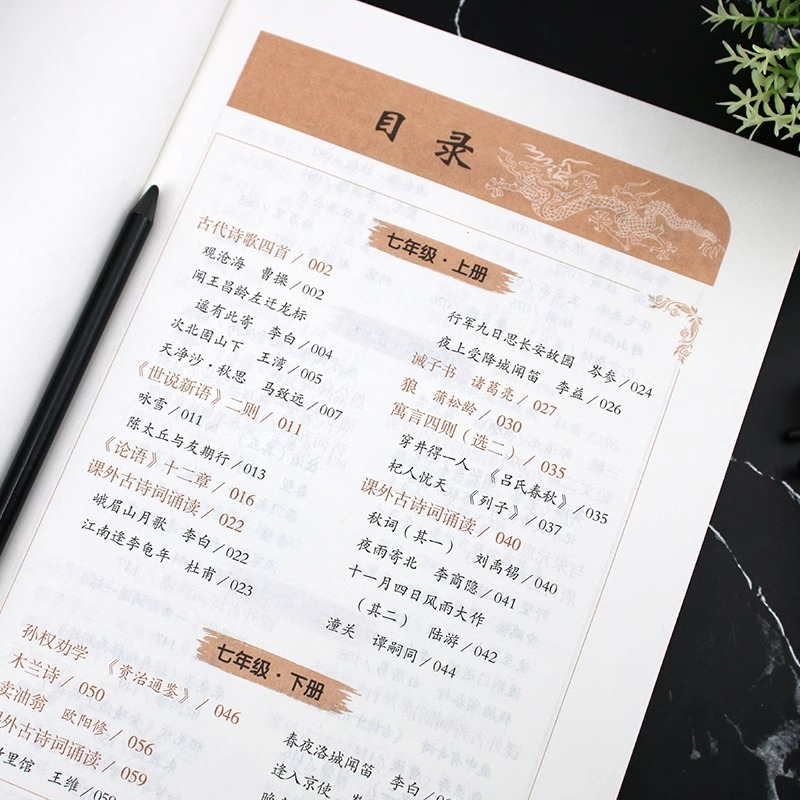 目录
七年级·上册
古代诗歌四首 / 002
观沧海 曹操 / 002
闻王昌龄左迁龙标
遥有此寄 李白 / 004
次北固山下 王湾 / 005
天净沙·秋思 马致远 / 007
《世说新语》二则 / 011
咏雪 / 011
陈太丘与友期行 / 013
《论语》十二章 / 016
课外古诗词诵读 / 022
峨眉山月歌 李白 / 022
江南逢李龟年 杜甫 / 023
行军九日思长安故园 岑参 / 024
夜上受降城闻笛 李益 / 026
诫子书 诸葛亮 / 027
狼 蒲松龄 / 030
寓言四则（选二） / 035
穿井得一人 《吕氏春秋》 / 035
杞人忧天 《列子》 / 037
课外古诗词诵读 / 040
秋词（其一） 刘禹锡 / 040
夜雨寄北 李商隐 / 041
十一月四日风雨大作
（其二） 陆游 / 042
潼关 谭嗣同 / 044
七年级·下册
孙权劝学 《资治通鉴》 / 046
木兰诗 / 050
卖油翁 欧阳修 / 056
外古诗词诵读 / 059
里馆 王维 / 059
春夜洛城闻笛 李白
逢入京使